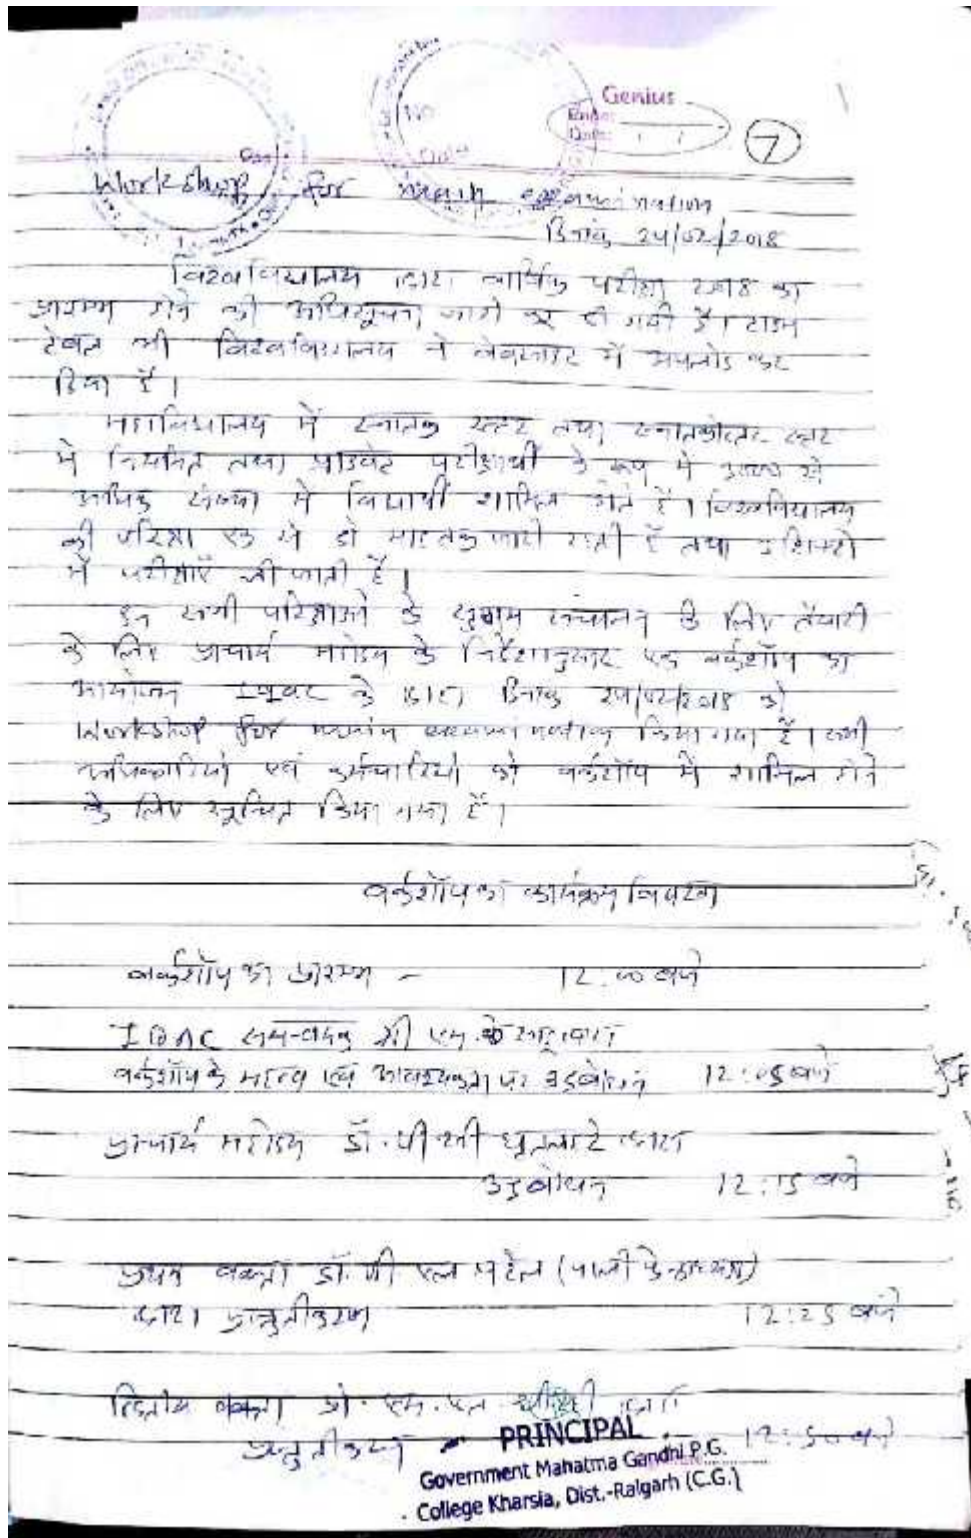 Genius
Date:
7
Workshop for main examination
दिनांक 24/02/2018
विश्वविद्यालय द्वारा वार्षिक परीक्षा 2018 का
प्रारम्भ होने की अधिसूचना जारी कर दी गयी है। टाइम
टेबल भी विश्वविद्यालय ने वेबसाइट में अपलोड कर
दिया है।
महाविद्यालय में स्नातक स्तर तथा स्नातकोत्तर स्तर
में नियमित तथा प्राइवेट परीक्षार्थी के रूप में से
अधिक संख्या में विद्यार्थी शामिल होते हैं। विश्वविद्यालय
की परिक्षा एक से दो माह तक जारी रहती है तथा 3 शिफ्टो
में परीक्षाएँ ली जाती है।
इन सभी परिक्षाओं के सुगम संचालन के लिए तैयारी
के लिए प्राचार्य महोदय के निर्देशानुसार एक वर्कशॉप का
आयोजन के द्वारा दिनांक 24/02/2018 को
Workshop for किया गया है। सभी
अधिकारियों एवं कर्मचारियों को वर्कशॉप में शामिल होने
के लिए सूचित किया गया है।
वर्कशॉप का कार्यक्रम विवरण
वर्कशॉप का प्रारम्भ - 12:00 बजे
IQAC समन्वयक श्री एम.के.
वर्कशॉप के महत्व एवं आवश्यकता पर उदबोधन 12:05 बजे
प्राचार्य महोदय डॉ. पी सी घृतलहरे द्वारा
उदबोधन 12:15 बजे
प्रथम वक्ता डॉ. जी एल पटेल
द्वारा प्रस्तुतीकरण 12:25 बजे
द्वितीय वक्ता प्रो. एम. एल द्वारा
प्रस्तुतीकरण - 12:50 बजे
PRINCIPAL
Government Mahatma Gandhi P.G.
College Kharsia, Dist.-Raigarh (C.G.)